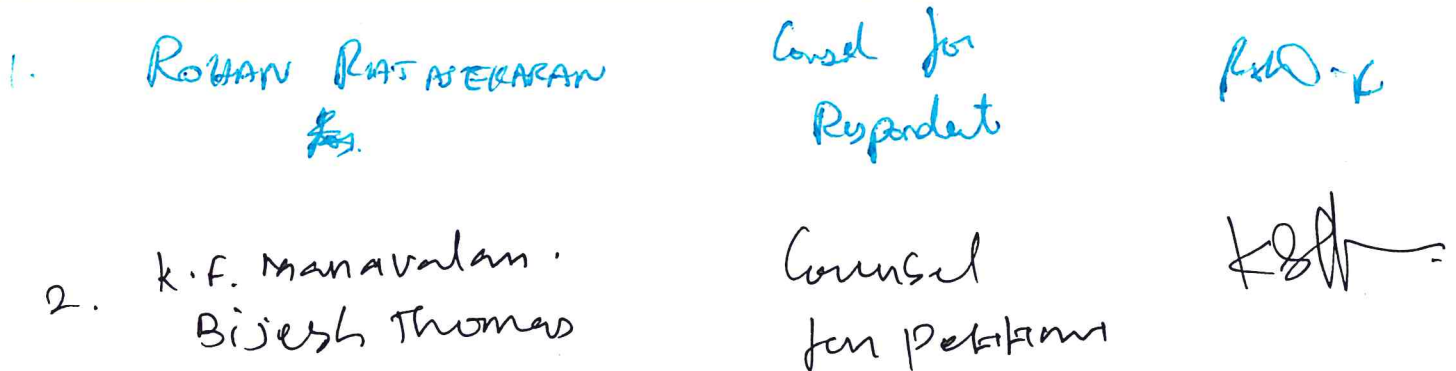 1. ROHAN RAJASEKARAN Counsel for
Respondent
2. K.F. Manavalan. Counsel
Bijesh Thomas for Petitioner